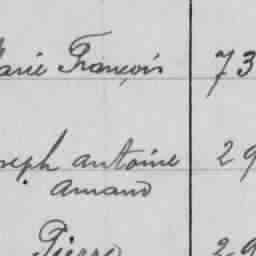 Marie François 73
Joseph antoine 29
Amand
Pierre 29